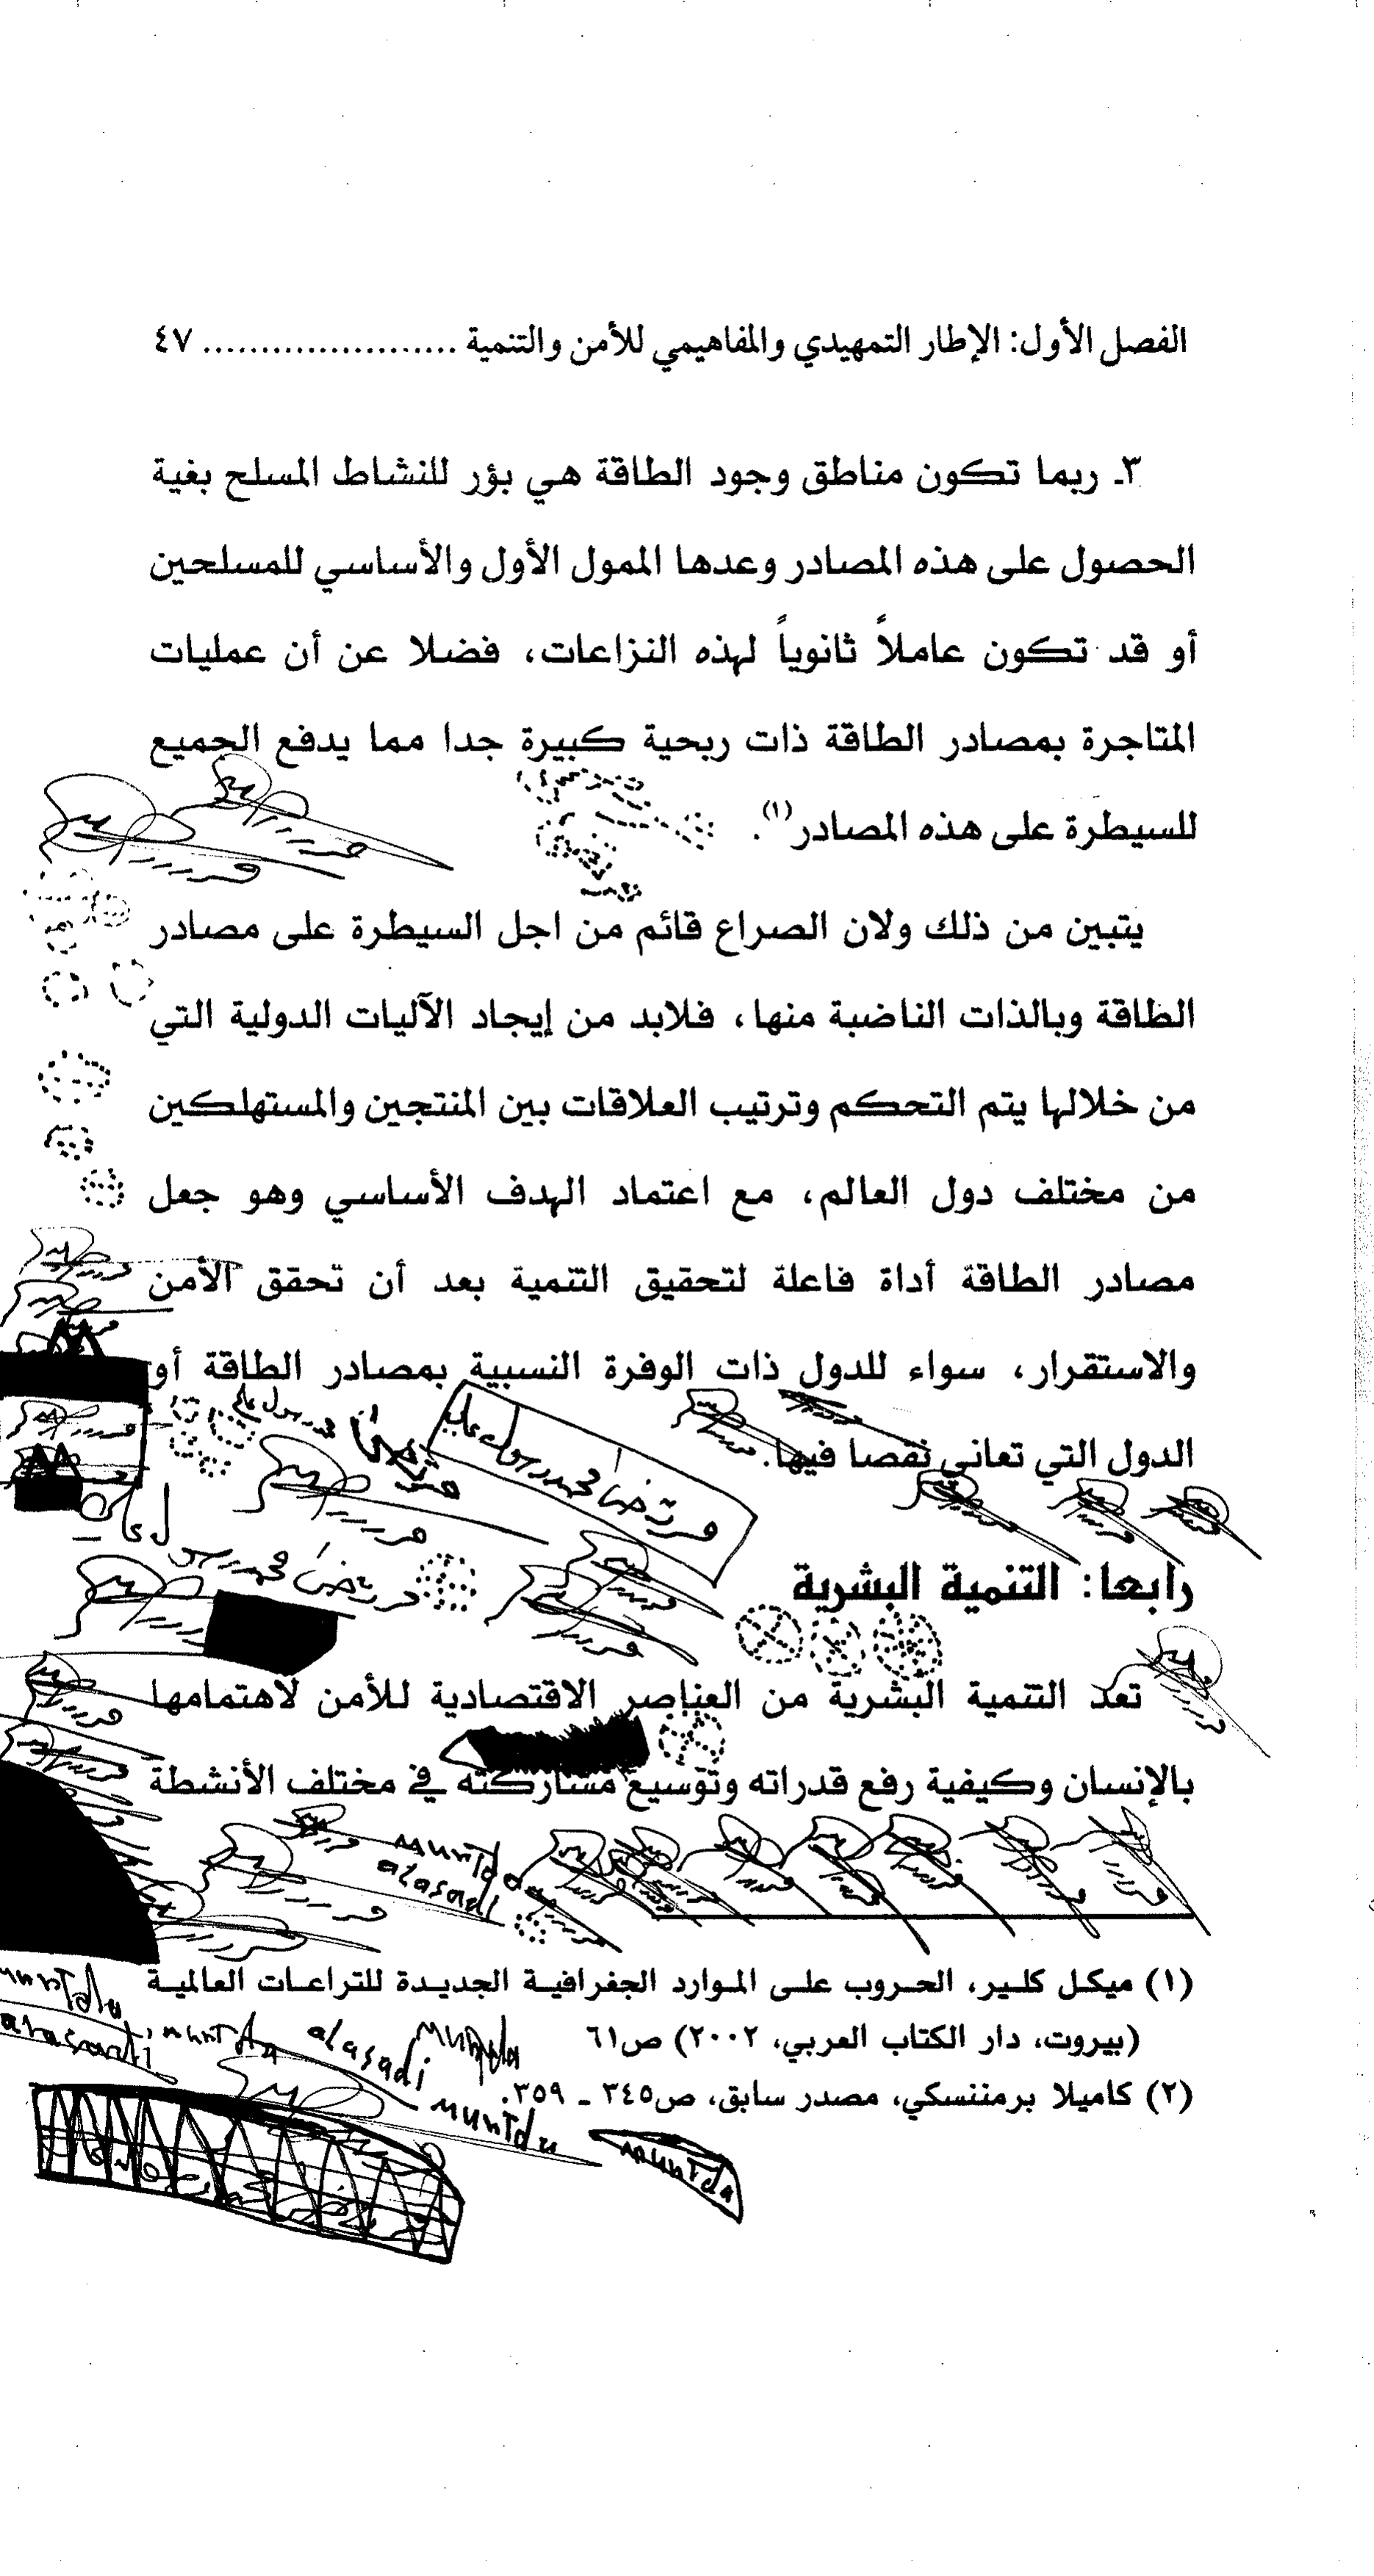 الفصل الأول: الإطار التمهيدي والمفاهيمي للأمن والتنمية ...................... ٤٧
٣ـ ربما تكون مناطق وجود الطاقة هي بؤر للنشاط المسلح بغية
الحصول على هذه المصادر وعدها الممول الأول والأساسي للمسلحين
أو قد تكون عاملاً ثانوياً لهذه النزاعات، فضلا عن أن عمليات
المتاجرة بمصادر الطاقة ذات ربحية كبيرة جدا مما يدفع الجميع
للسيطرة على هذه المصادر(١).
يتبين من ذلك ولان الصراع قائم من اجل السيطرة على مصادر
الطاقة وبالذات الناضبة منها، فلابد من إيجاد الآليات الدولية التي
من خلالها يتم التحكم وترتيب العلاقات بين المنتجين والمستهلكين
من مختلف دول العالم، مع اعتماد الهدف الأساسي وهو جعل
مصادر الطاقة أداة فاعلة لتحقيق التنمية بعد أن تحقق الأمن
والاستقرار، سواء للدول ذات الوفرة النسبية بمصادر الطاقة أو
الدول التي تعاني نقصا فيها.
رابعا: التنمية البشرية
تعد التنمية البشرية من العناصر الاقتصادية للأمن لاهتمامها
بالإنسان وكيفية رفع قدراته وتوسيع مشاركته في مختلف الأنشطة
muntda
alasadi
(١) ميكل كلير، الحروب على الموارد الجغرافية الجديدة للتراعات العالمية
(بيروت، دار الكتاب العربي، ٢٠٠٢) ص٦١
(٢) كاميلا برمننسكي، مصدر سابق، ص٣٤٥ ـ ٣٥٩.
muntda
alasadi
muntda
alasadi
muntda
muntda
muntda